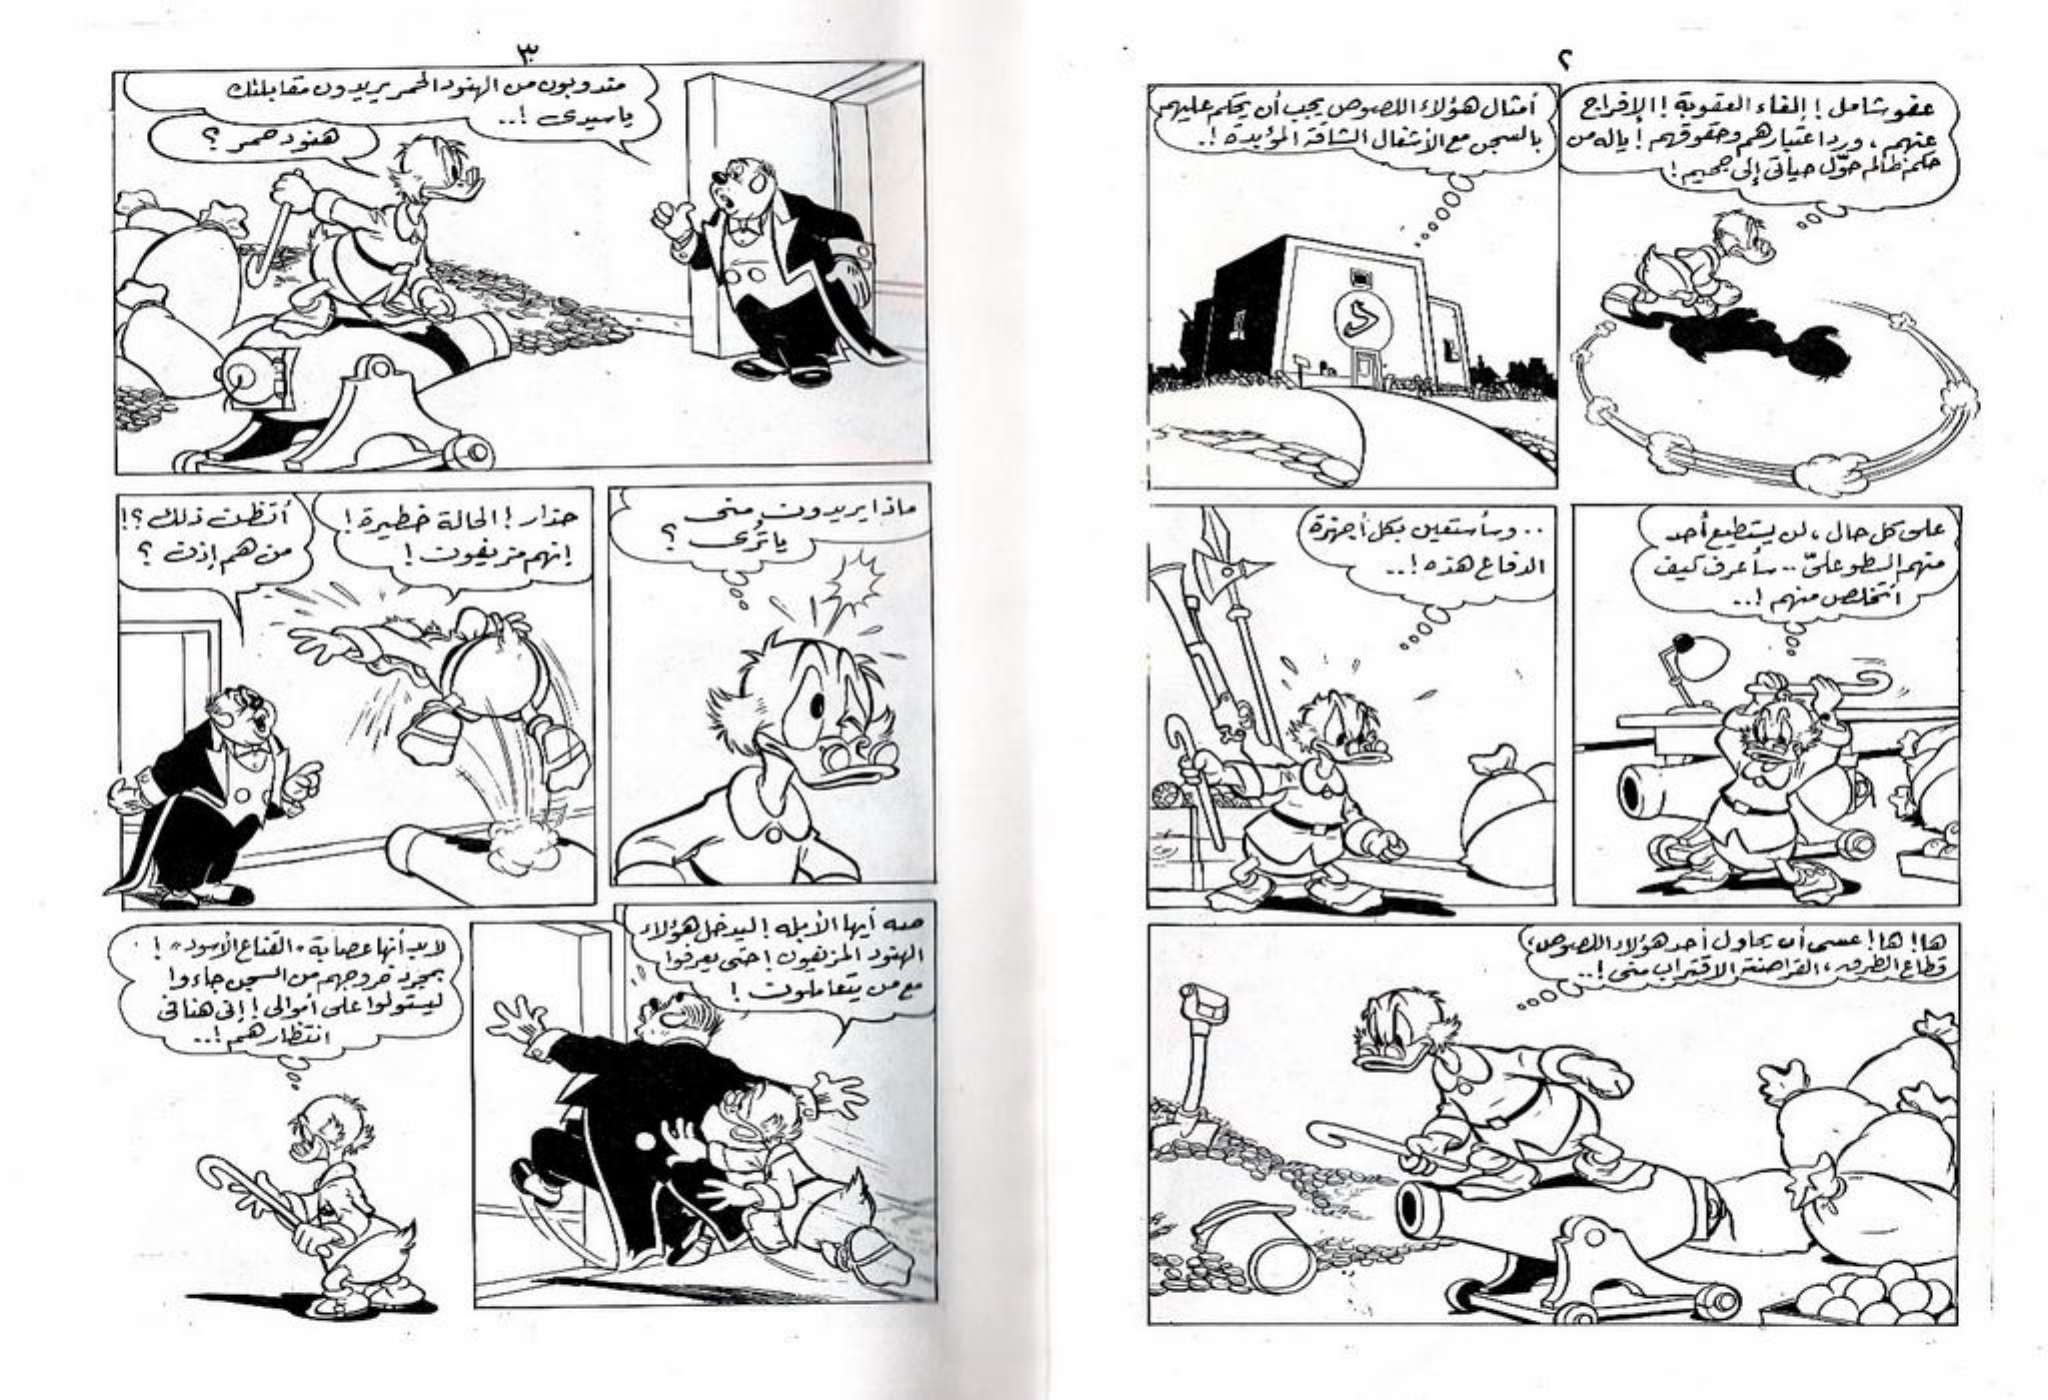 ٢
عفو شامل! إلغاء العقوبة! الإفراج
عنهم، ورد اعتبارهم وحقوقهم! ياله من
حكم ظالم حوّل حياتى إلى جحيم!
أمثال هؤلاء اللصوص يجب أن يحكم عليهم
بالسجن مع الأشغال الشاقة المؤبدة!..
د
على كل حال، لن يستطيع أحد
منهم السطو علىّ.. سأعرف كيف
أتخلص منهم!..
.. وسأستعين بكل أجهزة
الدفاع هذه!..
ها! ها! عسى أن يحاول أحد هؤلاء اللصوص،
قطاع الطرق، القراصنة الاقتراب منى!..
٣
مندوبون من الهنود الحمر يريدون مقابلتك
ياسيدى!..
هنود حمر؟
ماذا يريدون منى
ياترى؟
حذار! الحالة خطيرة!
إنهم مزيفون!
أتظن ذلك؟!
من هم إذن؟
صه أيها الأبله! ليدخل هؤلاء
الهنود المزيفون! حتى يعرفوا
مع من يتعاملون!
لابد أنها عصابة «القناع الأسود»!
بمجرد خروجهم من السجن جاءوا
ليستولوا على أموالى! إنى هنا فى
انتظارهم!..